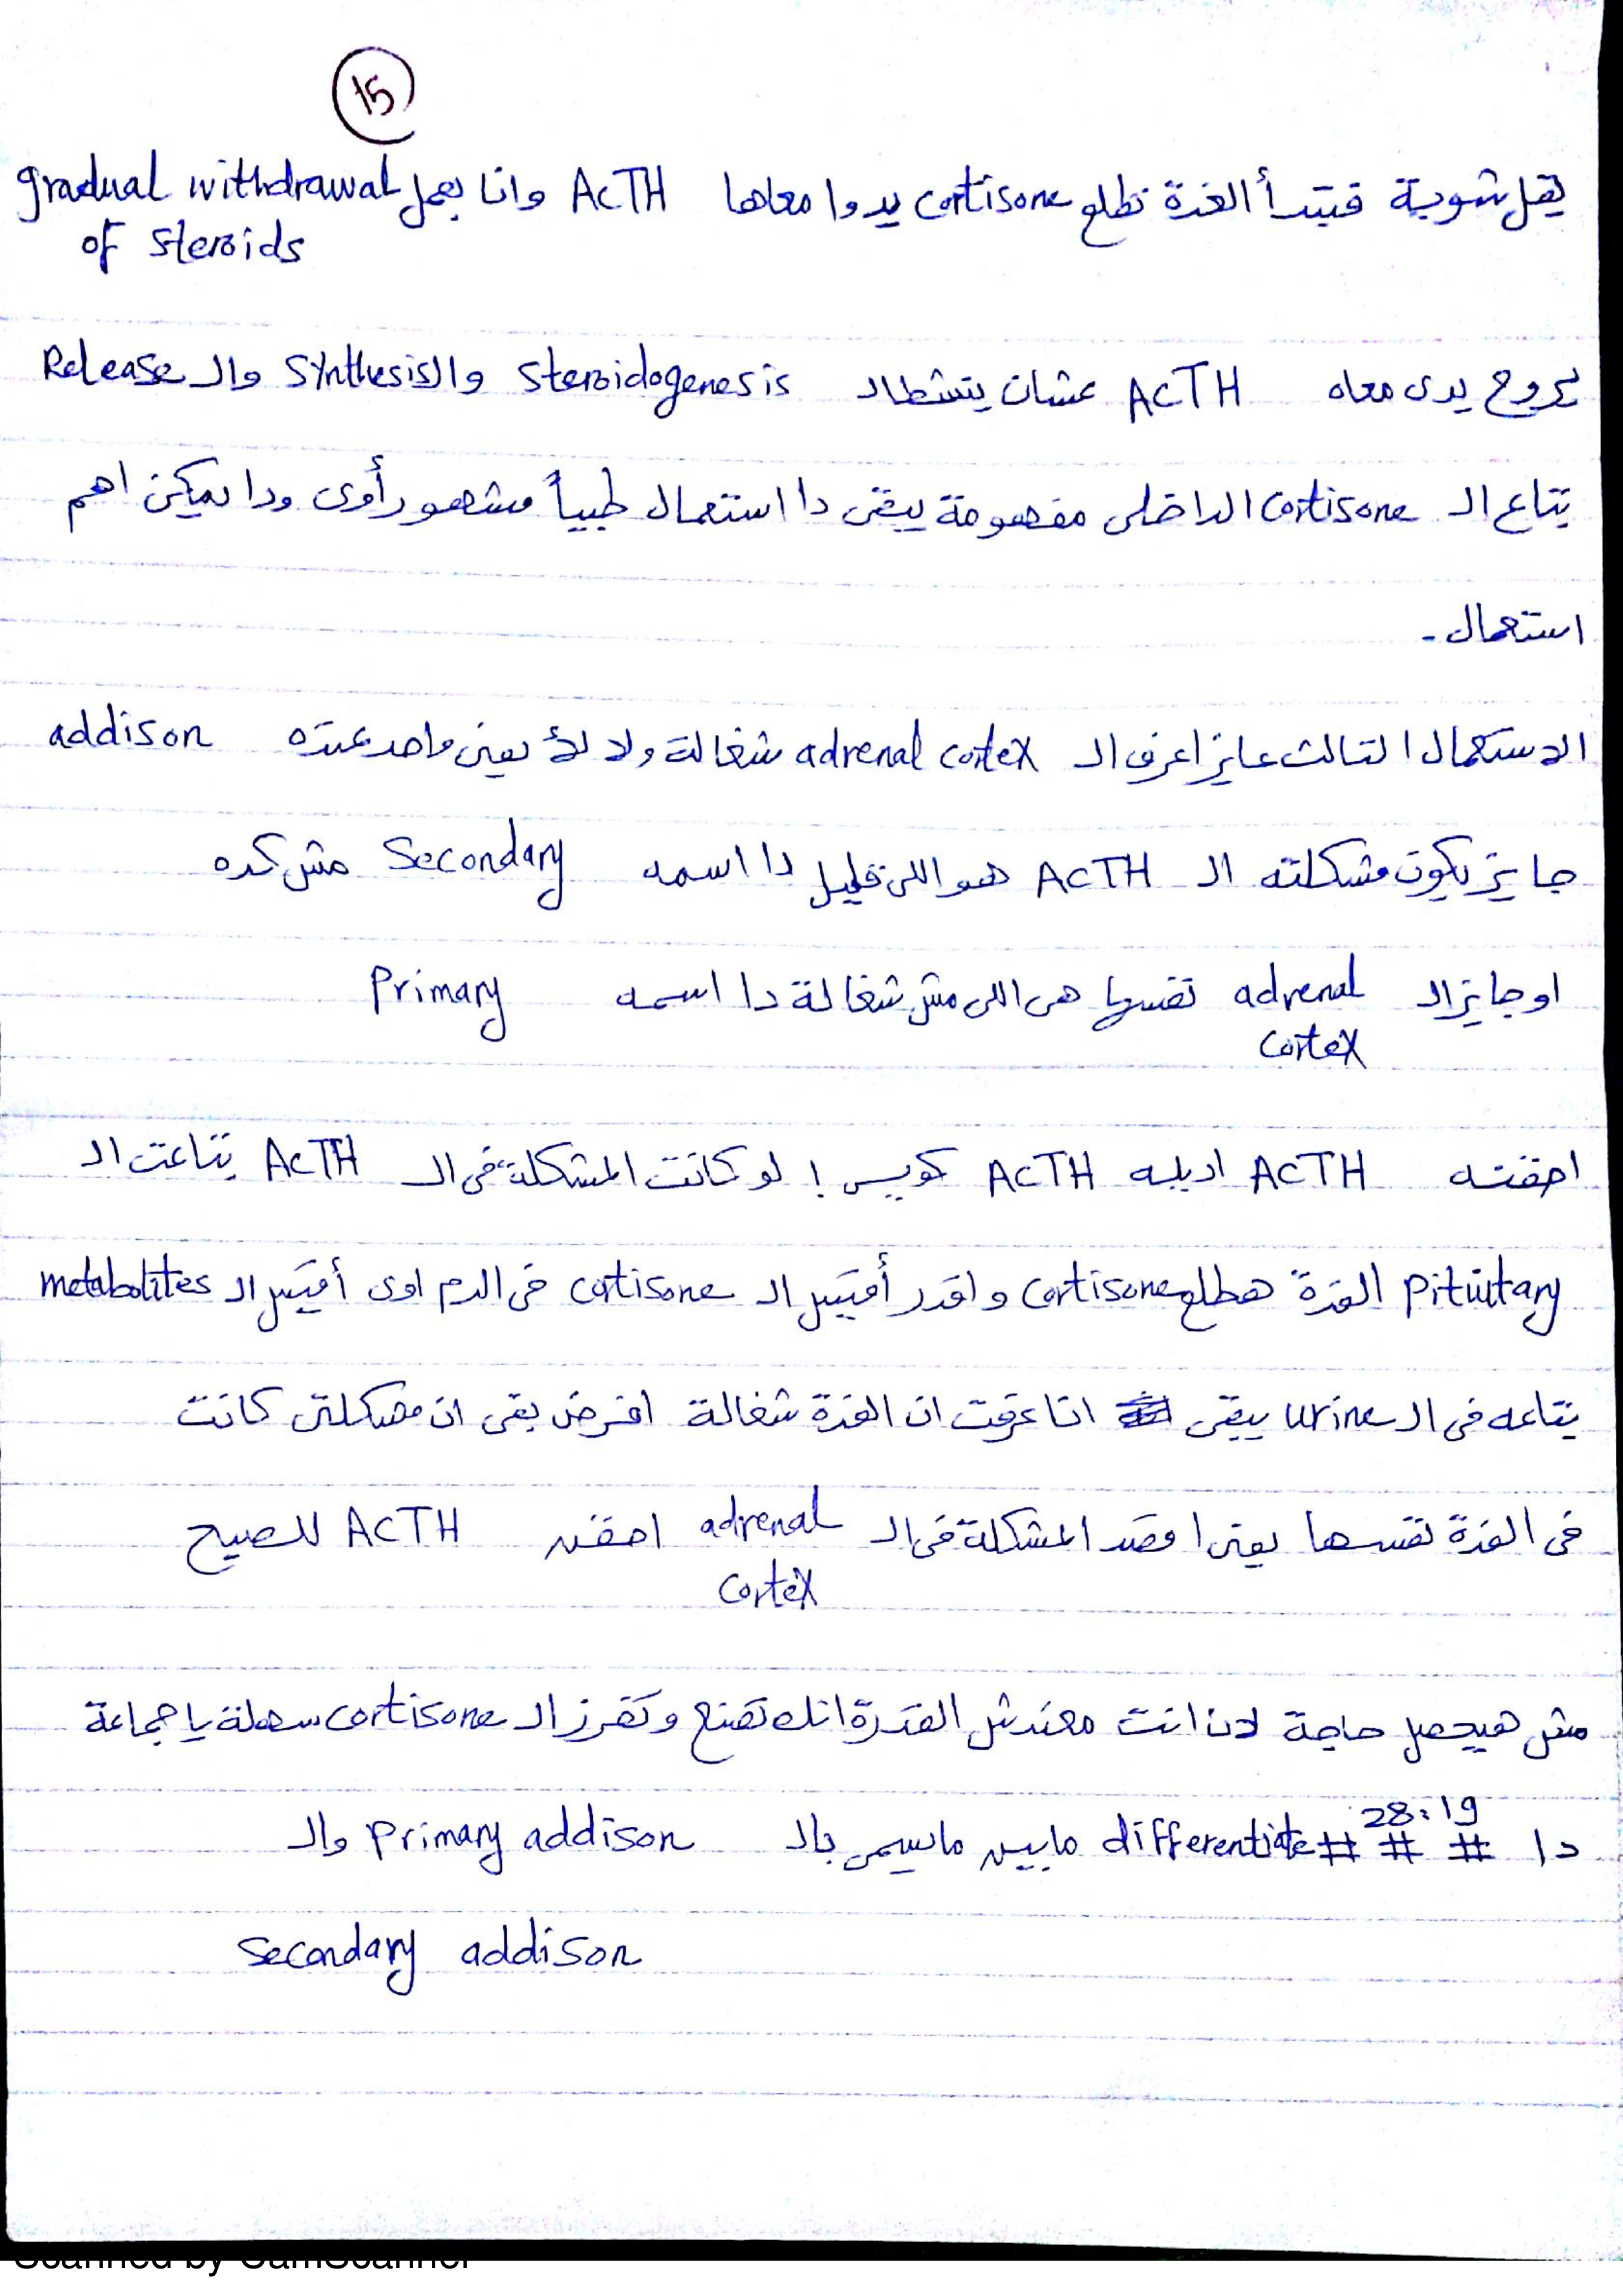 15
يقل شوية فتبتدأ الغدة تطلع cortisone يدوا معاها ACTH وانا بعمل gradual withdrawal
of steroids
يروح يدى معاه ACTH عشان يتشطال steroidogenesis والـ synthesis والـ Release
بتاع الـ cortisone الداخلى مفهومة يبقى دا استعمال طبياً مشهور أوى ودا يمكن اهم
استعمال -
الاستعمال التالت عايز اعرف الـ adrenal cortex شغالة ولا لأ يعنى واحد عنده addison
جايز يكون مشكلته الـ ACTH هو اللى قليل دا اسمه Secondary مش كده
او جايز الـ adrenal نفسها هى اللى مش شغالة دا اسمه Primary
cortex
احقنه ACTH اديله ACTH كويس ! لو كانت المشكلة فى الـ ACTH بتاعت الـ
Pituitary الغدة هطلع cortisone واقدر أقيس الـ cortisone فى الدم اوى أقيس الـ metabolites
بتاعه فى الـ urine يبقى انا عرفت ان الغدة شغالة افرض بقى ان مصكلتى كانت
فى الغدة نفسها يعنى اقصد المشكلة فى الـ adrenal احقن ACTH للصبح
cortex
مش هيحصل حاجة لان انت معندش القدرة انك تصنع وتفرز الـ cortisone سهلة يا جماعة
28:19
دا # # # differentiate مابين مايسمى بالـ primary addison والـ
secondary addison
Scanned by CamScanner